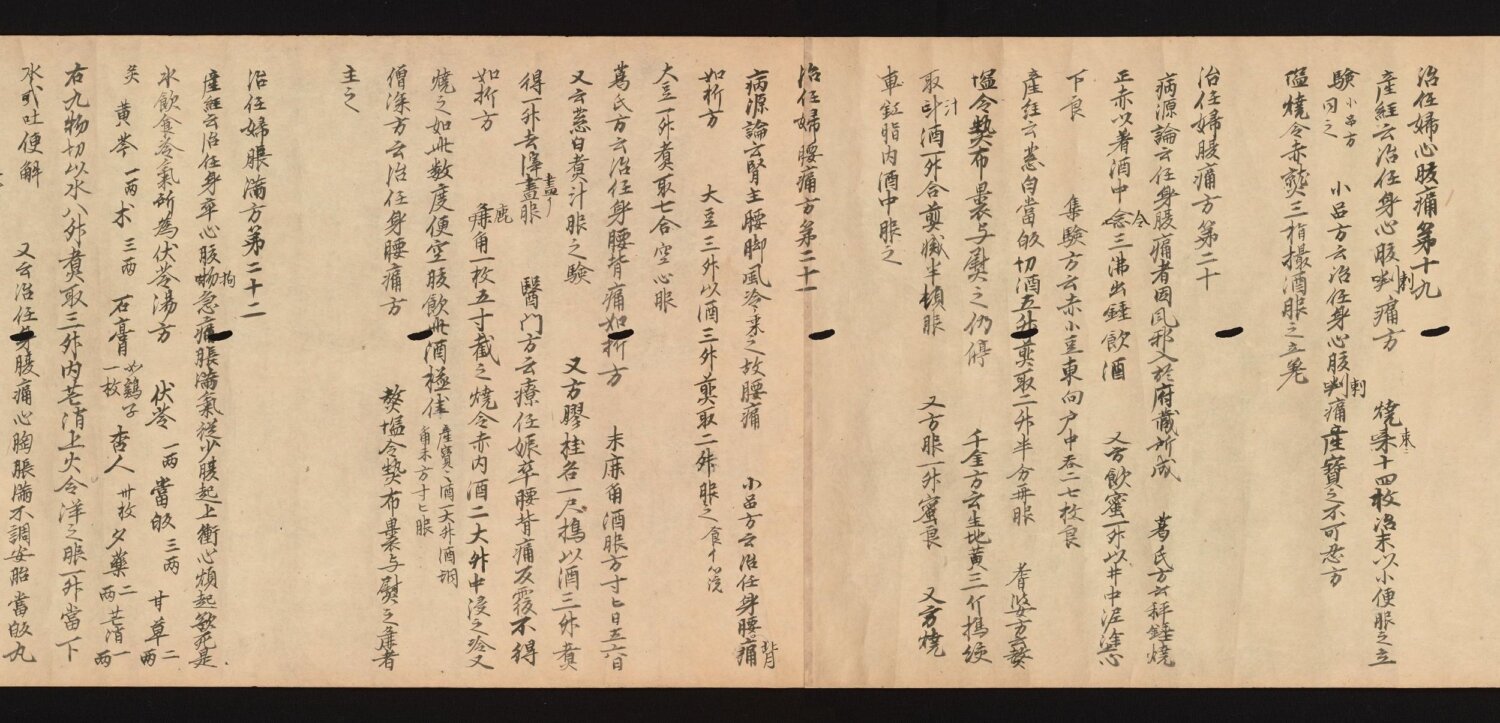 治任婦心腹痛第十九
産経云治任身心腹刺痛方 焼棗十四枚治末以小便服之立
験 小品方同之 小品方云治任身心腹刺痛産寶之不可忍方
塩焼令赤熱三指撮酒服之立㝹
治任婦腹痛方第二十
病源論云任身腹痛者因風邪入於府蔵所成 葛氏方云秤錘焼
正赤以著酒中令三沸出錘飲酒 又方飲蜜一升以井中泥塗心
下良 集験方云赤小豆東向戸中吞二七枚良
産経云葱白當皈切酒五升煎取二升半分再服 耆婆方云熬
塩令熱布裹与熨之仍停 千金方云生地黄三斤擣絞
取汁酒一升合煎減半頓服 又方服一升蜜良 又方焼
車釭脂内酒中服之
治任婦腰痛方第二十一
病源論云腎主腰脚風冷乗之故腰痛 小品方云治任身腰背痛
如折方 大豆三升以酒三升煎取二升服之
大豆一升煮取七合空心服
葛氏方云治任身腰背痛如折方 末鹿角酒服方寸匕日五六日
又云葱白煮汁服之験 又方膠桂各一尺擣以酒三升煮
得一升去滓盡服 醫門方云療任娠卒腰背痛反覆不得
如折方 鹿角一枚五寸截之焼令赤内酒二大升中浸之冷又
焼之如此数度便空腹飲此酒極佳 産寶酒一大升酒調角末方寸匕服
僧深方云治任身腰痛方 熬塩令熱布裹与熨之痛者
主之
治任婦脹満方第二十二
産経云治任身卒心腹拘急痛脹満氣従少腹起上衝心煩起欲死是
水飲食冷氣所為茯苓湯方 伏苓 一两 當皈 三两 甘草 二两
炙 黄芩 一两 术 三两 石膏 如鷄子一枚 杏人 卅枚 夕藥 二两 芒消 一两
右九物切以水八升煮取三升内芒消上火令洋之服一升當下
水或吐便解 又云治任身腹痛心胸脹満不調安胎當皈丸